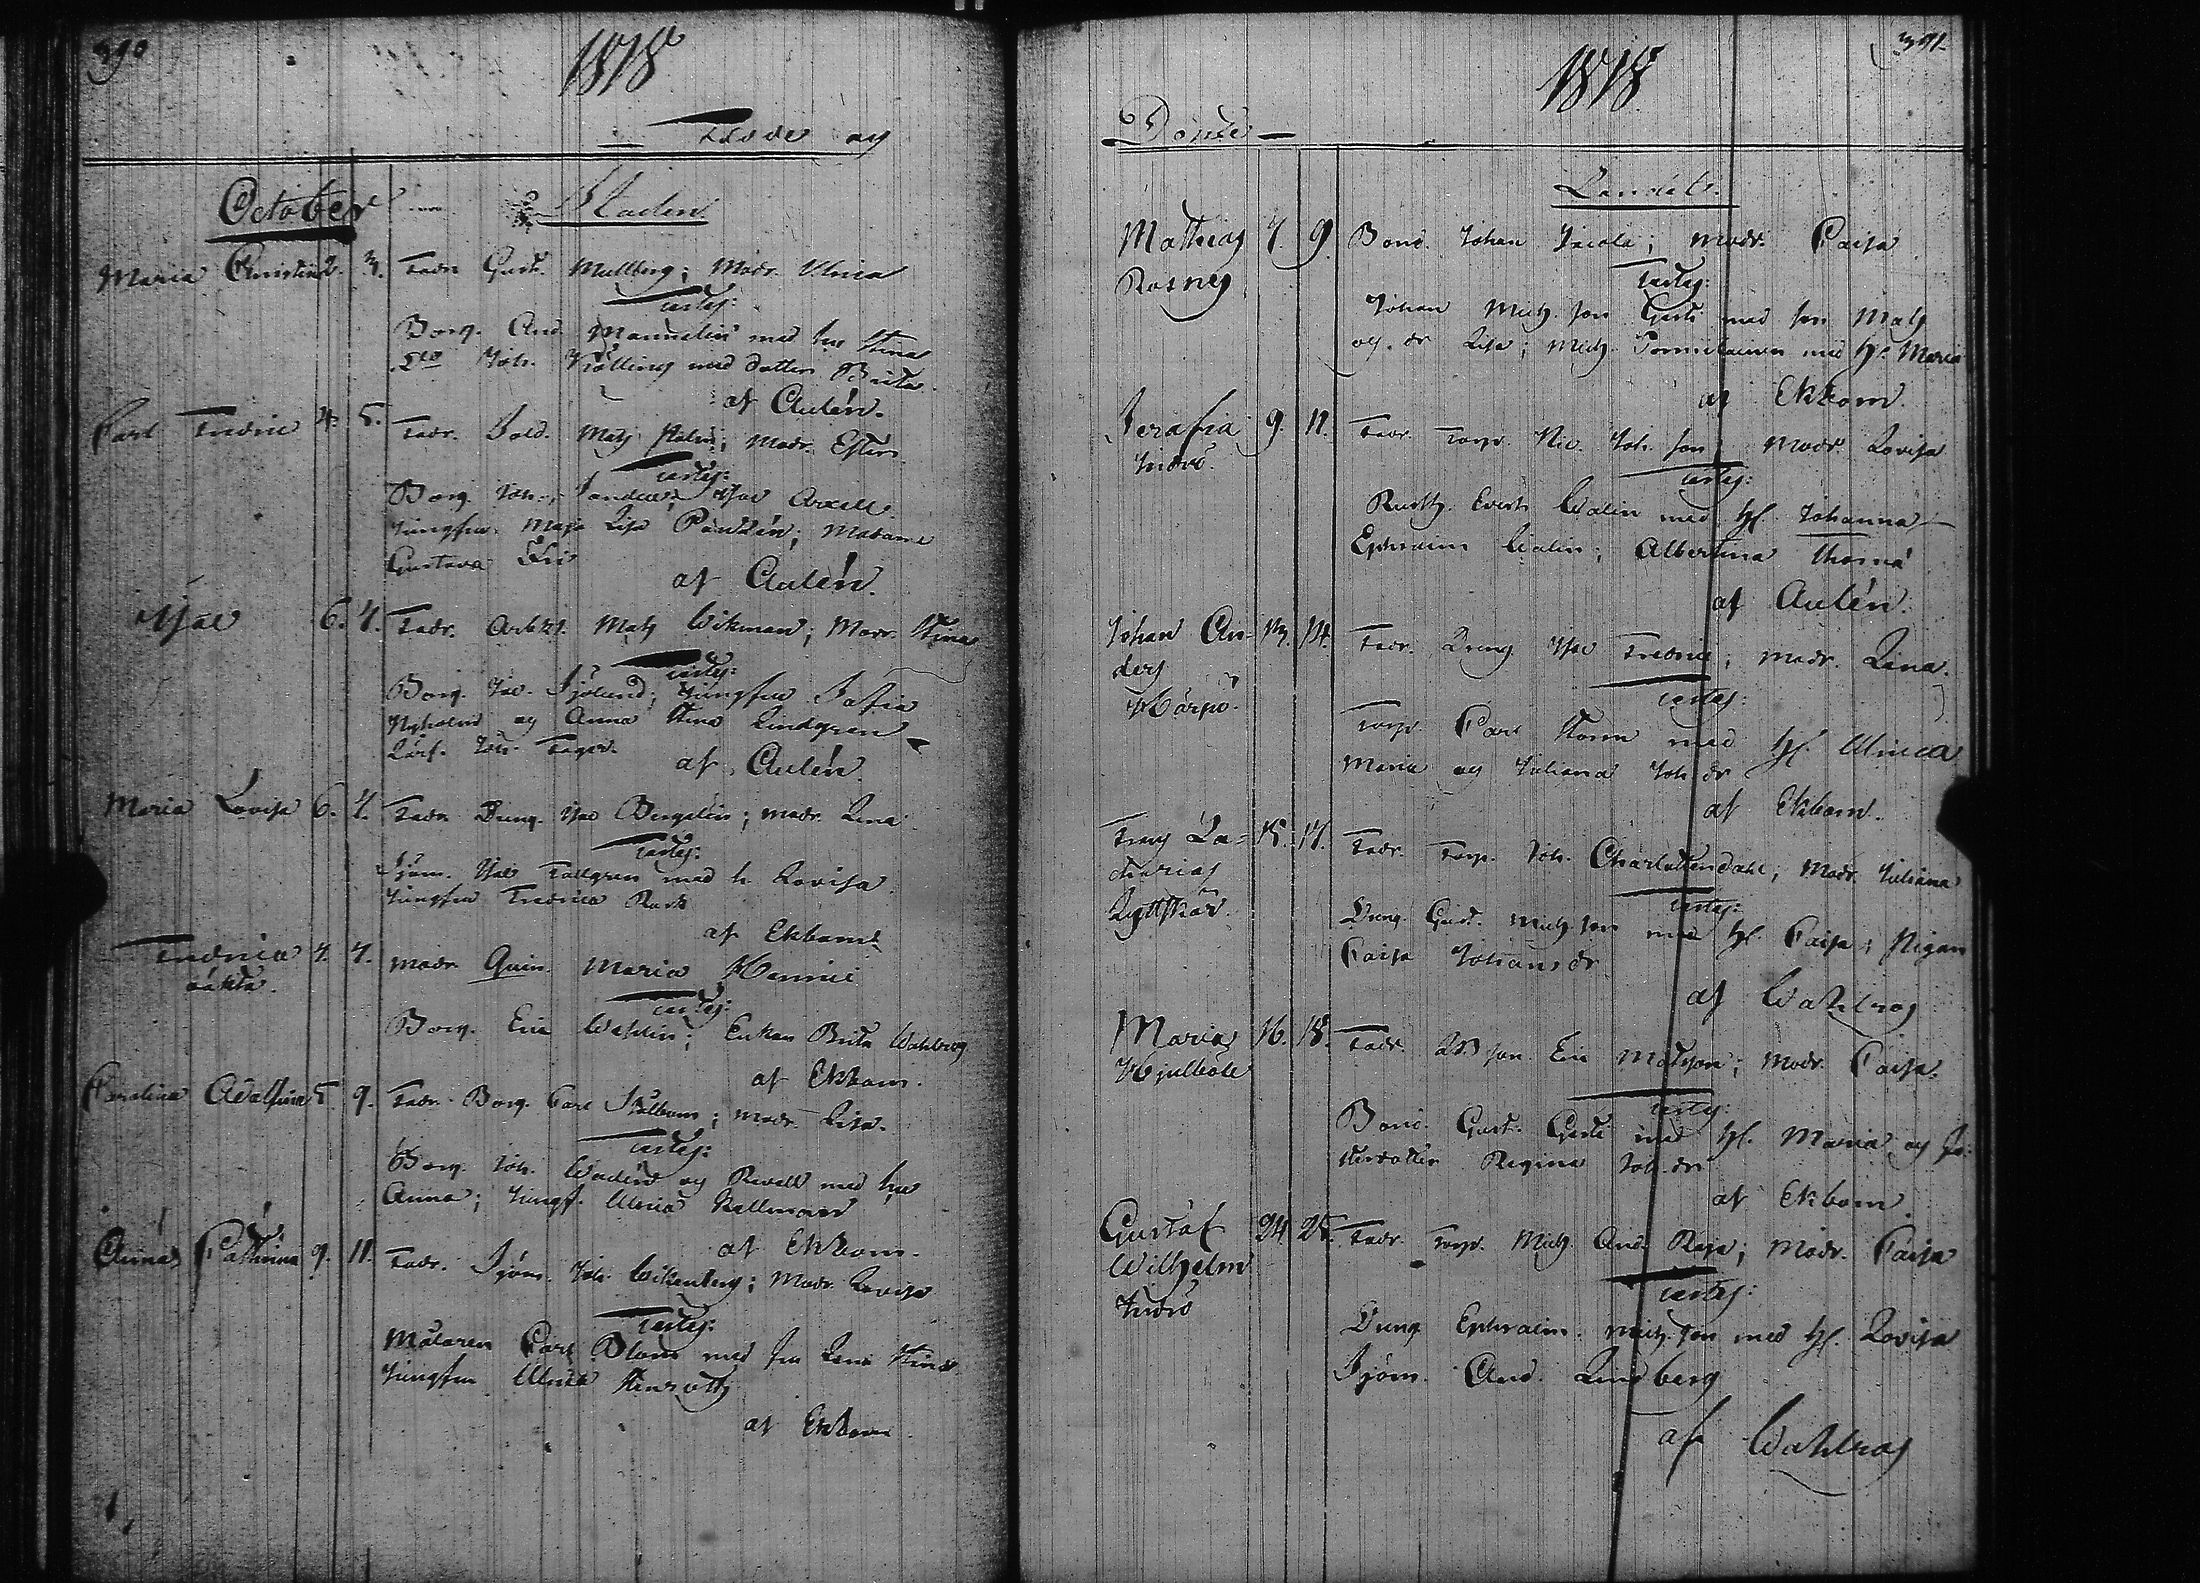 390
1818
Födde og
October
Staden
Maria Christina 2. 3. Fadr. Gust. Mullberg; Modr. Ulrica
Testes:
Borg. And. Mannelin med hu Stina
Do Joh. Kjölling med dotter Brita
af Aulén.
Carl Fredric 4. 5. Fadr. Sold. Mats Holm; Modr. Ester
Testes:
Borg. Joh. Arvell
Jungfru Maja Lisa Paulin; Madame
Gustava
af Aulén.
Isac 6. 7. Fadr. Arbkr. Mats Wikman; Modr. Stina
Testes:
Borg. Jac. Sjölund; Jungfru Sofia
Nyholm og Anna Stina Lindgren
Lärf. Joh. Fager.
af Aulén
Maria Lovisa 6. 7. Fadr. Dreng. Isac Bergelin; modr. Lena
Testes:
Sjöm. Isac Tallgren med h. Lovisa
Jungfru Fredrica
af Ekbom
Fredrica 4. 7. Modr. Quin. Maria
oäkta.
Testes:
Borg. Eric Wahlin; Enkan Brita Wahlberg
af Ekbom.
Carolina Adolfina 5. 9. Fadr. Borg. Carl Stålbom; modr. Lisa.
Testes:
Borg. Joh. Wadén og Revell med hu
Anna; Jungf. Ulrica Kellman
af Ekbom.
Anna Cathrina 9. 11. Fadr. Sjöm. Joh. Wikenberg; Modr. Lovisa
Testes:
Målaren Carl Blom med hu Lena Stina
Jungfru Ulrica Stenroth
af Ekbom
391
1818
Döpte
Landet.
Mathias 7. 9. Bond. Johan Jacola; modr. Caisa
Rosnes
Testes:
Johan Mich.son Gests med son Mats
og dr Lisa; Mich. Tommilainen med h. Maria
af Ekbom.
Serafia 9. 11. Fadr. Torp. Nic. Joh.son; Modr. Lovisa
Inderö.
Testes:
Rusth. Evert Walin med h. Johanna
Ephraim Walin; Albertina Thomé
af Aulén.
Johan An- 13. 14. Fadr. Dreng Isac Fredric; modr. Lena.
ders
Harjö.
Testes:
Torp. Carl Storm med h. Ulrica
Maria og Juliana Joh.dr
af Ekbom.
Frans Za- 15. 17. Fadr. Torp. Joh. Charlottendahl; Modr. Juliana
charias
Lyttskär.
Testes:
Dreng. Gust. Mich.son med h. Caisa; Pigan
Caisa Johansdr
af Wahlros
Maria 16. 18. Fadr. Eric Matsson; Modr. Caisa.
Hjulböle
Testes:
Bond. Gust. Gests med h. Maria og
Regina Joh.dr
af Ekbom.
Gustaf 24. 25. Fadr. Torp. Mich. And. Raja; Modr. Caisa
Wilhelm
Inderö
Testes:
Dreng Ephraim Mich.son med h. Lovisa
Sjöm. And. Lindberg
af Wahlros